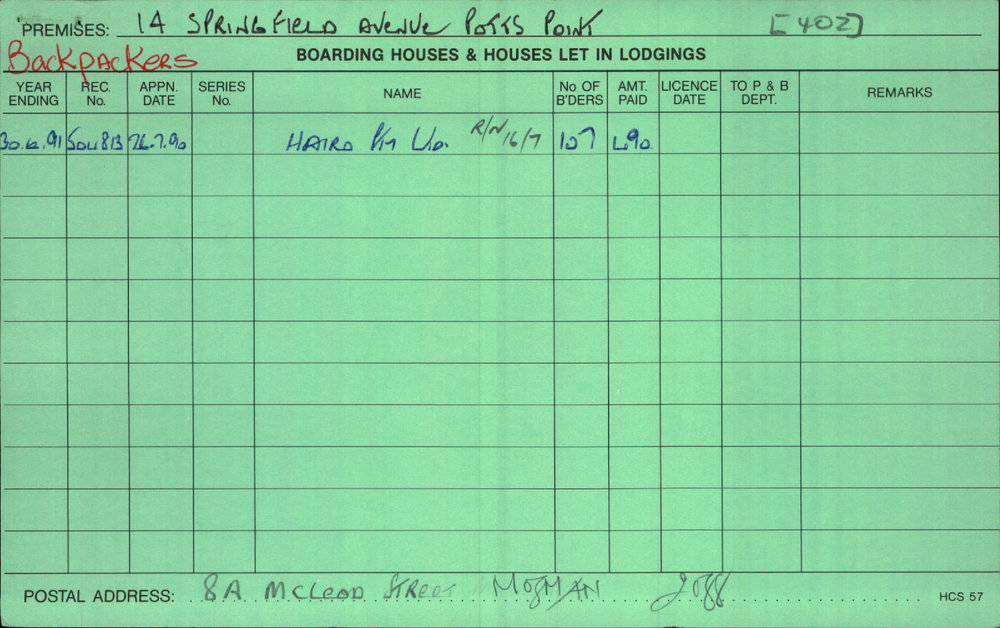 PREMISES: 14 SPRINGFIELD AVENUE POTTS POINT [402]
Backpackers
BOARDING HOUSES & HOUSES LET IN LODGINGS
YEAR ENDING REC. No. APPN. DATE SERIES No. NAME No OF B'DERS AMT. PAID LICENCE DATE TO P & B DEPT. REMARKS
30.6.91 26.7.90 HAIRD P/L Ltd. R/N 16/7 107 490
POSTAL ADDRESS: 8A McLeod Street MOSMAN 2088
HCS 57